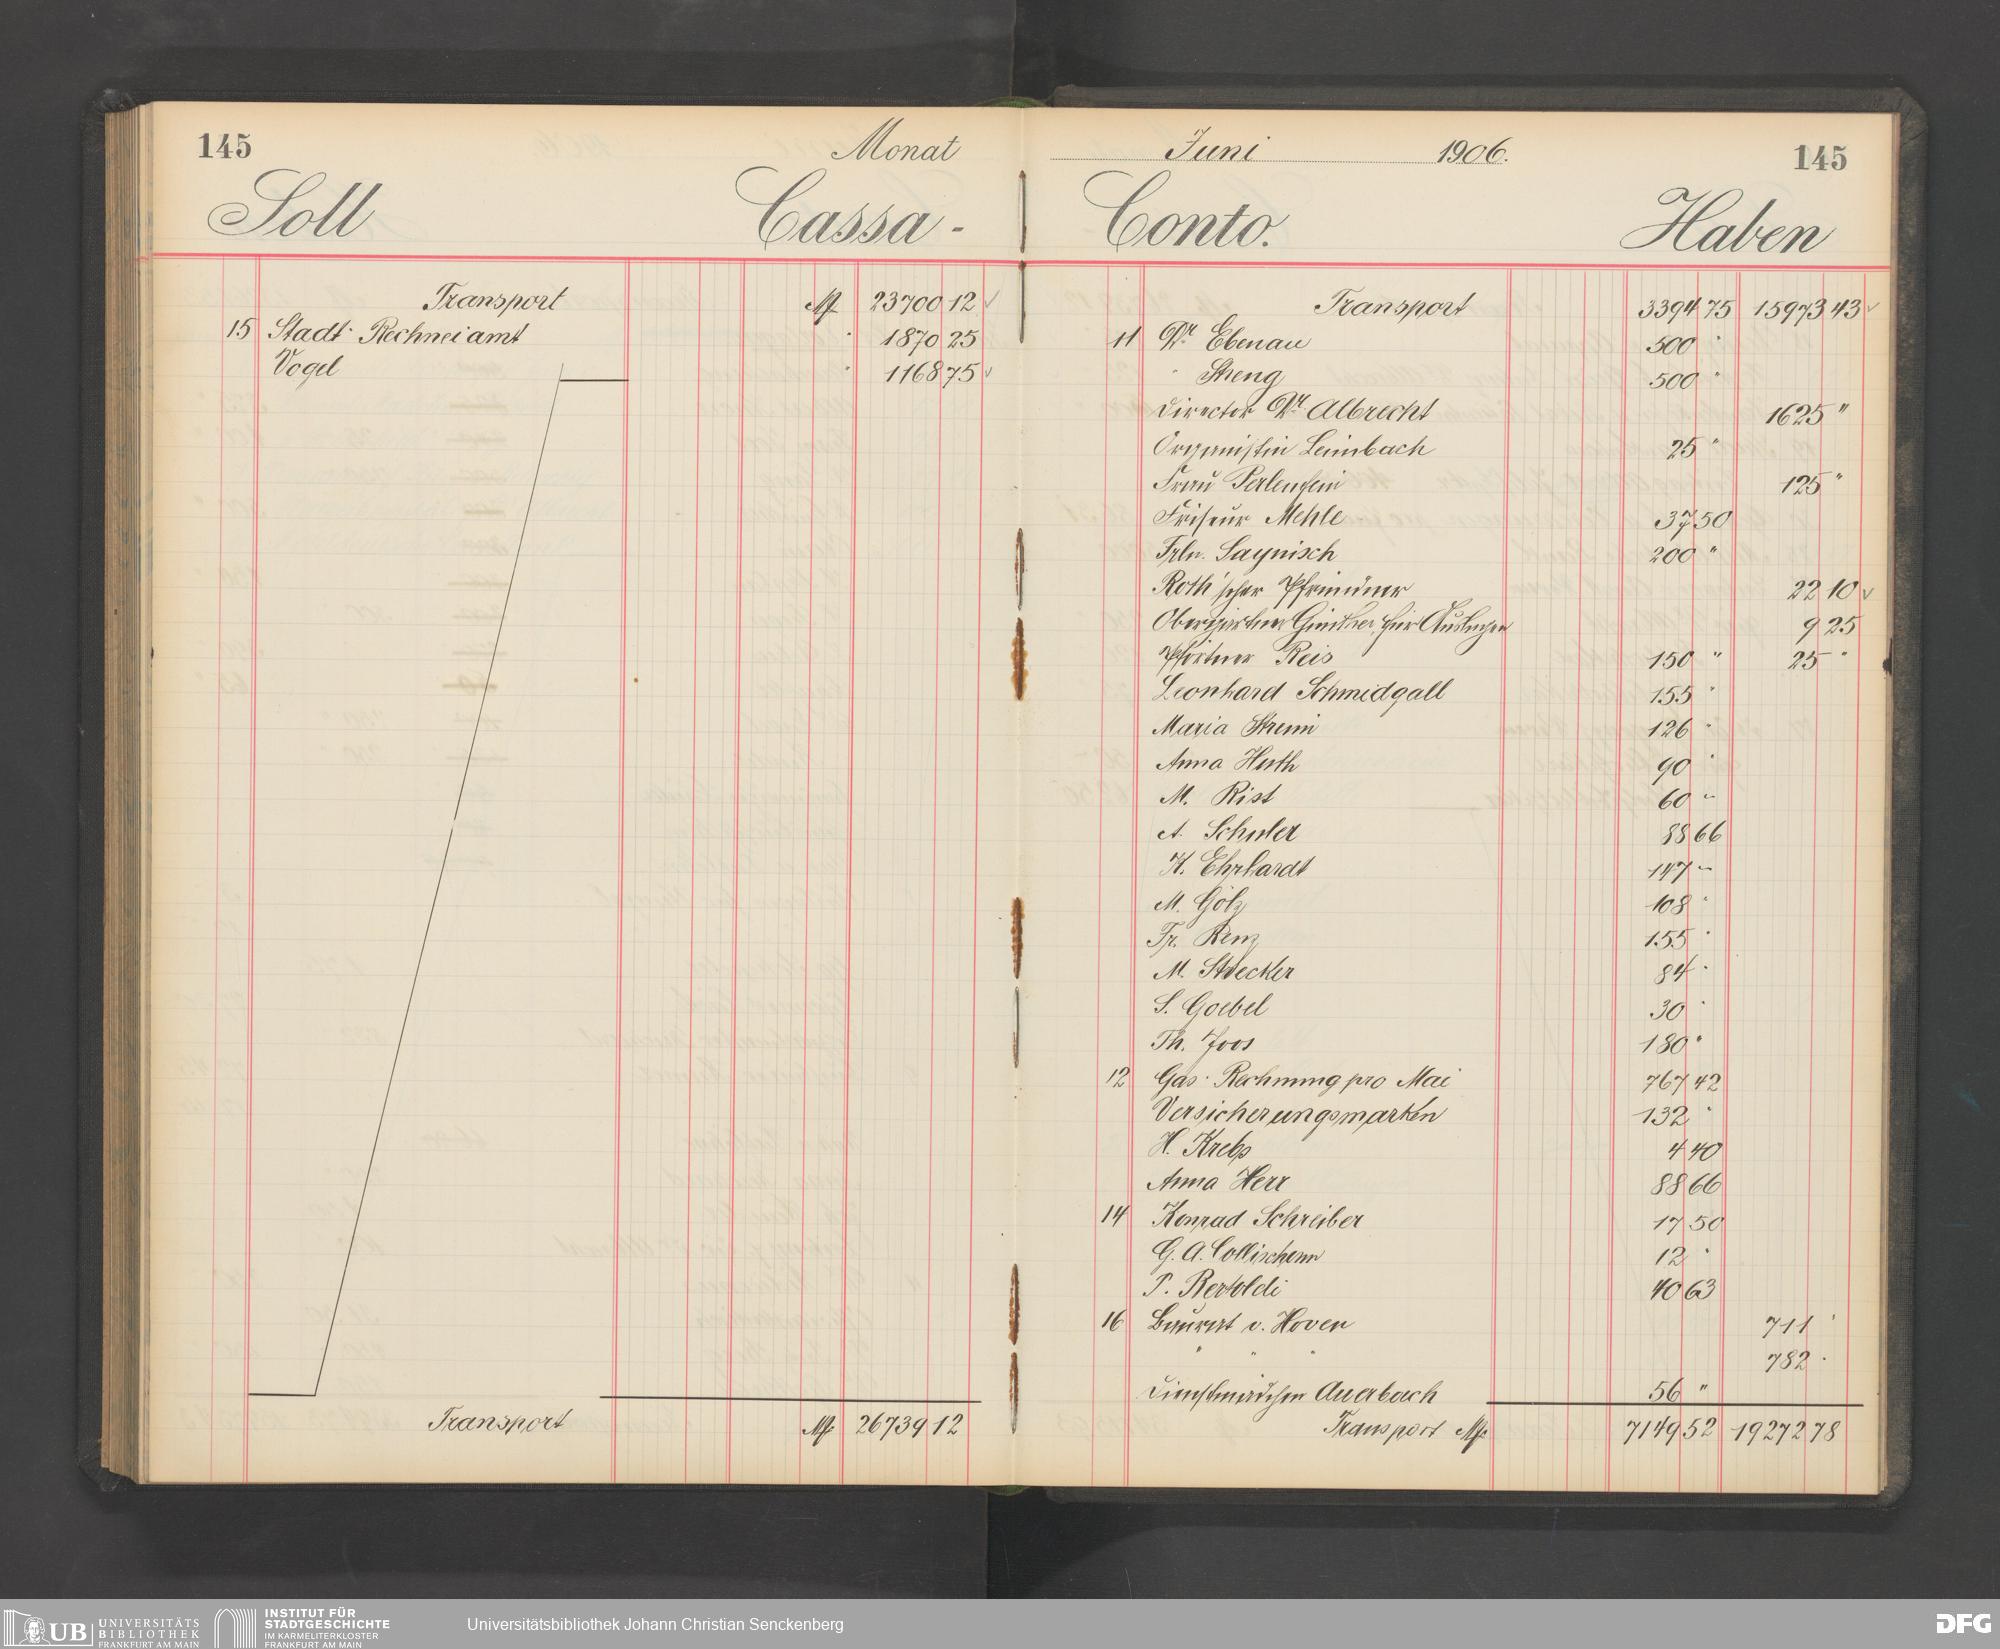 145
Monat
Soll
Cassa-
Transport M 23700 12
15 Stadt-Rechneiamt " 1870 25
Vogel " 1168 75
Transport M 26739 12
Juni 1906.
145
Conto.
Haben
Transport 3394 75 15973 43
11 Dr. Ebenau 500 "
" Streng 500 "
Director Dr. Albrecht 1625 "
Organistin Leimbach 25 "
Frau Perlenfein 125 "
Friseur Mehle 37 50
Frln. Saynisch 200 "
Roth'scher Pfründner 22 10
Obergärtner Günther, für Auslagen 9 25
Pförtner Reis 150 " 25 "
Leonhard Schmidgall 155 "
Maria Streim 126 "
Anna Huth 90 "
M. Rist 60 "
A. Schuler 88 66
K. Ehrhardt 147 "
M. Gölz 108 "
Fr. Renz 155 "
M. Stoecker 84 "
S. Goebel 30 "
Th. Joos 180 "
12 Gas-Rechnung pro Mai 767 42
Versicherungsmarken 132 "
H. Krebs 4 40
Anna Herr 88 66
14 Konrad Schreiber 17 50
G. A. Collischonn 12 "
P. Bertoldi 40 63
16 Baurat v. Hoven 711 "
" " " 782 "
Dienstmädchen Auerbach 56 "
Transport M 7149 52 19272 78
UB UNIVERSITÄTS
BIBLIOTHEK
FRANKFURT AM MAIN
INSTITUT FÜR
STADTGESCHICHTE
IM KARMELITERKLOSTER
FRANKFURT AM MAIN
Universitätsbibliothek Johann Christian Senckenberg
DFG